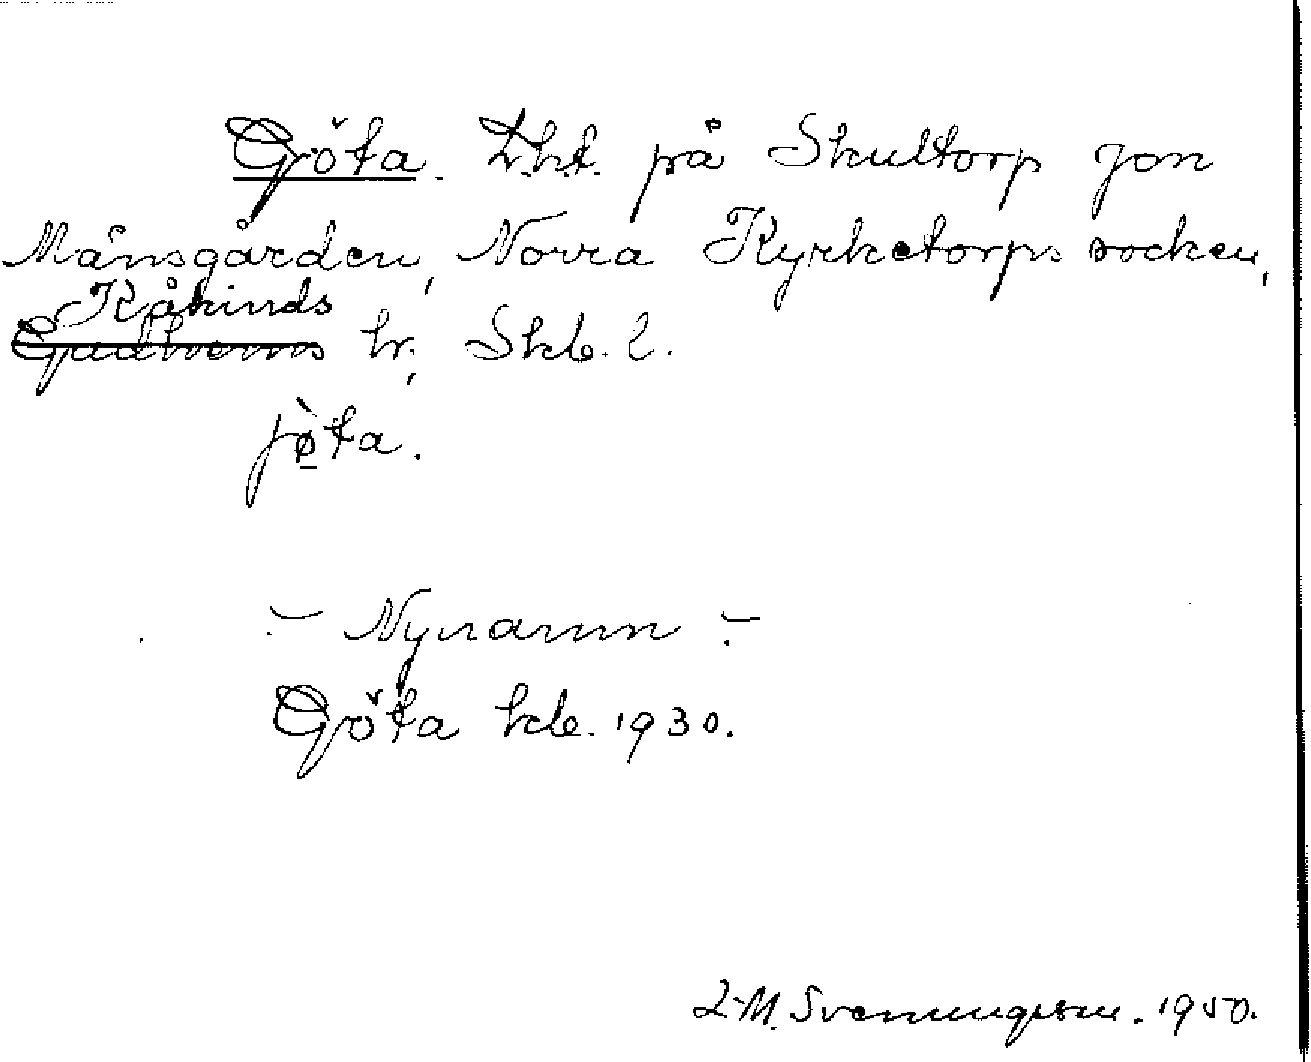 Göta. Lht. på Skultorp Jon
Månsgården, Norra Kyrketorps socken,
Kåkinds
Gudhems hr, Skb. l.
jø̀ta.
– Nynamn –
Göta kb. 1930.
L-M. Svenungsson. 1950.